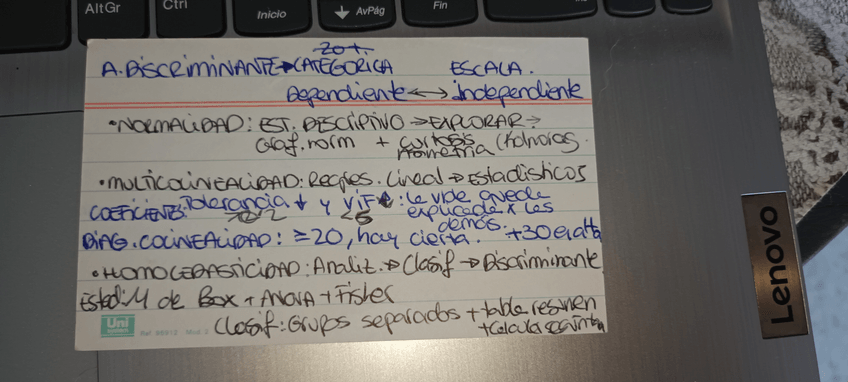 AltGr
Ctrl
Inicio
AvPág
Fin
20+.
A. DISCRIMINANTE → CATEGÓRICA ESCALA.
Dependiente ↔ independiente
• NORMALIDAD: EST. DESCRIPTIVO → EXPLORAR →
Graf. norm + curtosis
• MULTICOLINEALIDAD: Regres. Lineal → Estadísticos
COEFICIENTES: Tolerancia ↓ y VIF : la vble queda
explicada x las
<5 demás.
DIAG. COLINEALIDAD: =20, hay cierta. +30 es alta
• HOMOCEDASTICIDAD: Analiz. → Clasif → Discriminante
Estad: M de Box + ANOVA + Fisher
Clasif: Grupos separados + tabla resumen
Uni
Lenovo